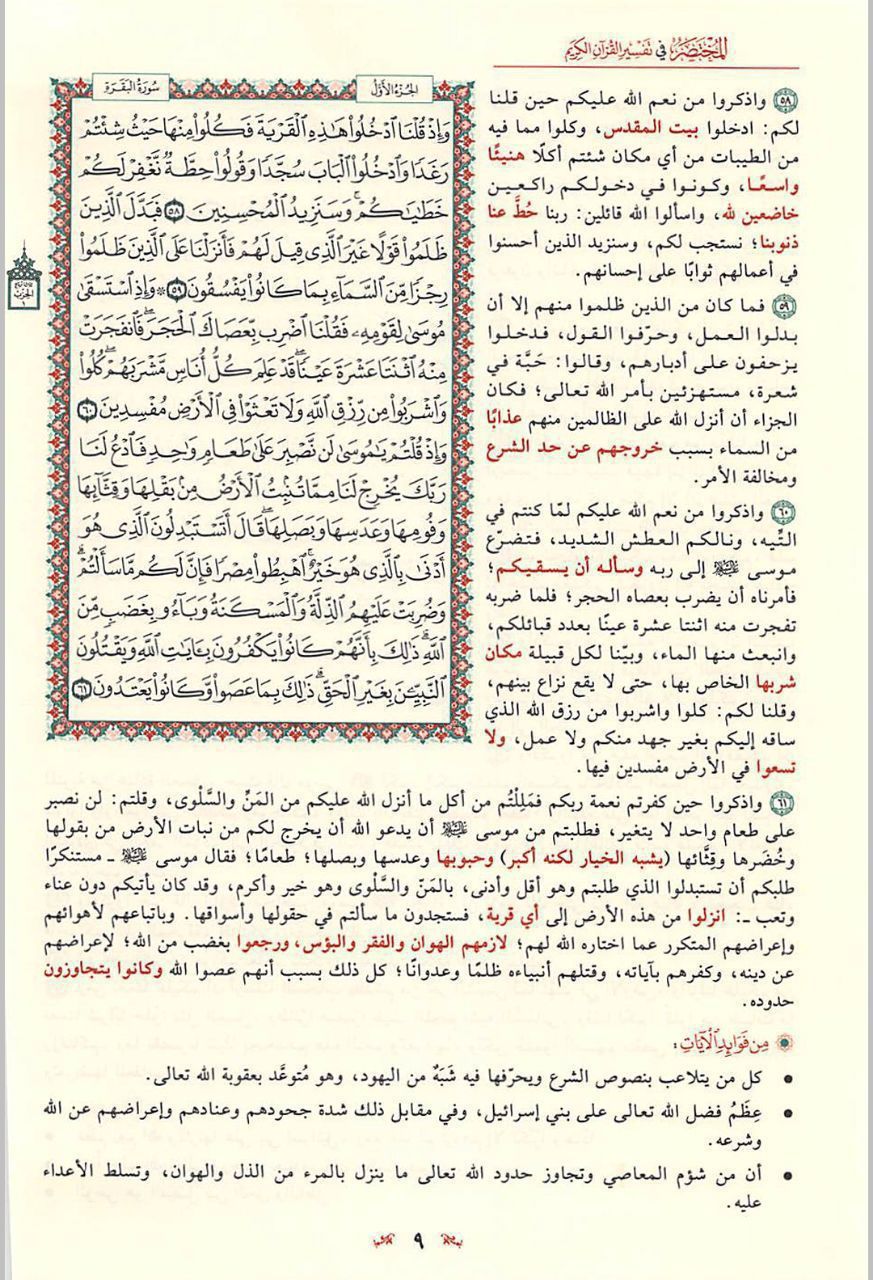 المختصر في تفسير القرآن الكريم
الجزء الأول
سورة البقرة
وَإِذْ قُلْنَا ٱدْخُلُواْ هَٰذِهِ ٱلْقَرْيَةَ فَكُلُواْ مِنْهَا حَيْثُ شِئْتُمْ
رَغَدًا وَٱدْخُلُواْ ٱلْبَابَ سُجَّدًا وَقُولُواْ حِطَّةٌ نَّغْفِرْ لَكُمْ
خَطَٰيَٰكُمْ وَسَنَزِيدُ ٱلْمُحْسِنِينَ ٥٨ فَبَدَّلَ ٱلَّذِينَ
ظَلَمُواْ قَوْلًا غَيْرَ ٱلَّذِى قِيلَ لَهُمْ فَأَنزَلْنَا عَلَى ٱلَّذِينَ ظَلَمُواْ
رِجْزًا مِّنَ ٱلسَّمَآءِ بِمَا كَانُواْ يَفْسُقُونَ ٥٩ ۞ وَإِذِ ٱسْتَسْقَىٰ
مُوسَىٰ لِقَوْمِهِۦ فَقُلْنَا ٱضْرِب بِّعَصَاكَ ٱلْحَجَرَ فَٱنفَجَرَتْ
مِنْهُ ٱثْنَتَا عَشْرَةَ عَيْنًا قَدْ عَلِمَ كُلُّ أُنَاسٍ مَّشْرَبَهُمْ كُلُواْ
وَٱشْرَبُواْ مِن رِّزْقِ ٱللَّهِ وَلَا تَعْثَوْاْ فِى ٱلْأَرْضِ مُفْسِدِينَ ٦٠
وَإِذْ قُلْتُمْ يَٰمُوسَىٰ لَن نَّصْبِرَ عَلَىٰ طَعَامٍ وَٰحِدٍ فَٱدْعُ لَنَا
رَبَّكَ يُخْرِجْ لَنَا مِمَّا تُنۢبِتُ ٱلْأَرْضُ مِنۢ بَقْلِهَا وَقِثَّآئِهَا
وَفُومِهَا وَعَدَسِهَا وَبَصَلِهَا قَالَ أَتَسْتَبْدِلُونَ ٱلَّذِى هُوَ
أَدْنَىٰ بِٱلَّذِى هُوَ خَيْرٌ ٱهْبِطُواْ مِصْرًا فَإِنَّ لَكُم مَّا سَأَلْتُمْ
وَضُرِبَتْ عَلَيْهِمُ ٱلذِّلَّةُ وَٱلْمَسْكَنَةُ وَبَآءُو بِغَضَبٍ مِّنَ
ٱللَّهِ ذَٰلِكَ بِأَنَّهُمْ كَانُواْ يَكْفُرُونَ بِـَٔايَٰتِ ٱللَّهِ وَيَقْتُلُونَ
ٱلنَّبِيِّـۧنَ بِغَيْرِ ٱلْحَقِّ ذَٰلِكَ بِمَا عَصَواْ وَّكَانُواْ يَعْتَدُونَ ٦١
٥٨ واذكروا من نعم الله عليكم حين قلنا
لكم: ادخلوا بيت المقدس، وكلوا مما فيه
من الطيبات من أي مكان شئتم أكلًا هنيئًا
واسعًا، وكونوا في دخولكم راكعين
خاضعين لله، واسألوا الله قائلين: ربنا حُطَّ عنا
ذنوبنا؛ نستجب لكم، وسنزيد الذين أحسنوا
في أعمالهم ثوابًا على إحسانهم.
٥٩ فما كان من الذين ظلموا منهم إلا أن
بدلوا العمل، وحرّفوا القول، فدخلوا
يزحفون على أدبارهم، وقالوا: حَبَّة في
شعرة، مستهزئين بأمر الله تعالى؛ فكان
الجزاء أن أنزل الله على الظالمين منهم عذابًا
من السماء بسبب خروجهم عن حد الشرع
ومخالفة الأمر.
٦٠ واذكروا من نعم الله عليكم لمّا كنتم في
التِّيه، ونالكم العطش الشديد، فتضرّع
موسى عليه السلام إلى ربه وسأله أن يسقيكم؛
فأمرناه أن يضرب بعصاه الحجر؛ فلما ضربه
تفجرت منه اثنتا عشرة عينًا بعدد قبائلكم،
وانبعث منها الماء، وبيّنا لكل قبيلة مكان
شربها الخاص بها، حتى لا يقع نزاع بينهم،
وقلنا لكم: كلوا واشربوا من رزق الله الذي
ساقه إليكم بغير جهد منكم ولا عمل، ولا
تسعوا في الأرض مفسدين فيها.
٦١ واذكروا حين كفرتم نعمة ربكم فمَلِلْتُم من أكل ما أنزل الله عليكم من المَنِّ والسَّلْوى، وقلتم: لن نصبر
على طعام واحد لا يتغير، فطلبتم من موسى عليه السلام أن يدعو الله أن يخرج لكم من نبات الأرض من بقولها
وخُضَرها وقِثَّائها (يشبه الخيار لكنه أكبر) وحبوبها وعدسها وبصلها؛ طعامًا؛ فقال موسى عليه السلام ـ مستنكرًا
طلبكم أن تستبدلوا الذي طلبتم وهو أقل وأدنى، بالمَنّ والسَّلْوى وهو خير وأكرم، وقد كان يأتيكم دون عناء
وتعب ـ: انزلوا من هذه الأرض إلى أي قرية، فستجدون ما سألتم في حقولها وأسواقها. وباتباعهم لأهوائهم
وإعراضهم المتكرر عما اختاره الله لهم؛ لازمهم الهوان والفقر والبؤس، ورجعوا بغضب من الله؛ لإعراضهم
عن دينه، وكفرهم بآياته، وقتلهم أنبياءه ظلمًا وعدوانًا؛ كل ذلك بسبب أنهم عصوا الله وكانوا يتجاوزون
حدوده.
من فوائد الآيات:
• كل من يتلاعب بنصوص الشرع ويحرّفها فيه شَبَهٌ من اليهود، وهو مُتوعَّد بعقوبة الله تعالى.
• عِظَمُ فضل الله تعالى على بني إسرائيل، وفي مقابل ذلك شدة جحودهم وعنادهم وإعراضهم عن الله
وشرعه.
• أن من شؤم المعاصي وتجاوز حدود الله تعالى ما ينزل بالمرء من الذل والهوان، وتسلط الأعداء
عليه.
٩